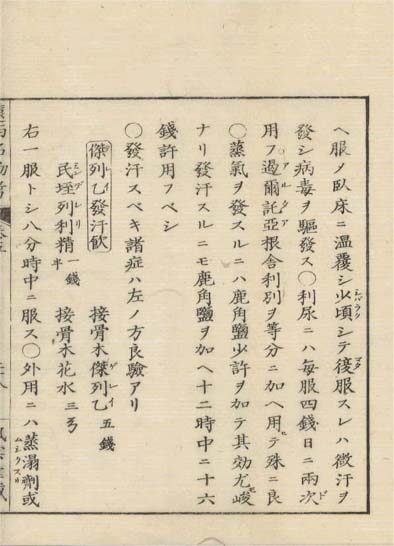 ヘ服ノ臥床ニ温覆シ少頃シテ復服スレハ微汗ヲ
發シ病毒ヲ驅發ス〇利尿ニハ毎服四錢日ニ兩次
用フ過爾託亞根舎利別ヲ等分ニ加ヘ用テ殊ニ良
〇蒸氣ヲ發スルニハ鹿角鹽少許ヲ加テ其効尤峻
ナリ發汗スルニモ鹿角鹽ヲ加ヘ十二時中ニ十六
錢許用フベシ
〇發汗スベキ諸症ハ左ノ方良驗アリ
傑列乙發汗飲 接骨木傑列乙 五錢
民垤列利精 一錢半 接骨木花水 三弓
右一服トシ八分時中ニ服ス〇外用ニハ蒸溻劑或